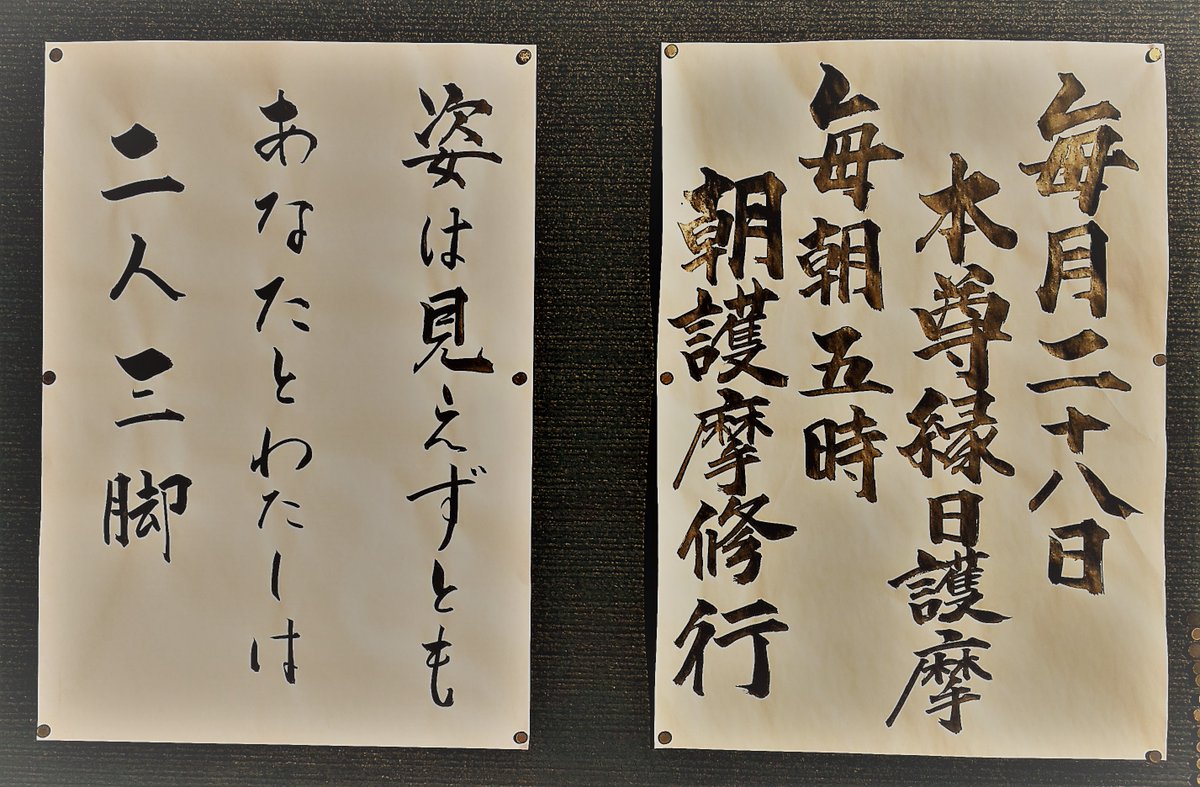 毎月二十八日
本尊縁日護摩
毎朝五時
朝護摩修行
姿は見えずとも
あなたとわたしは
二人三脚